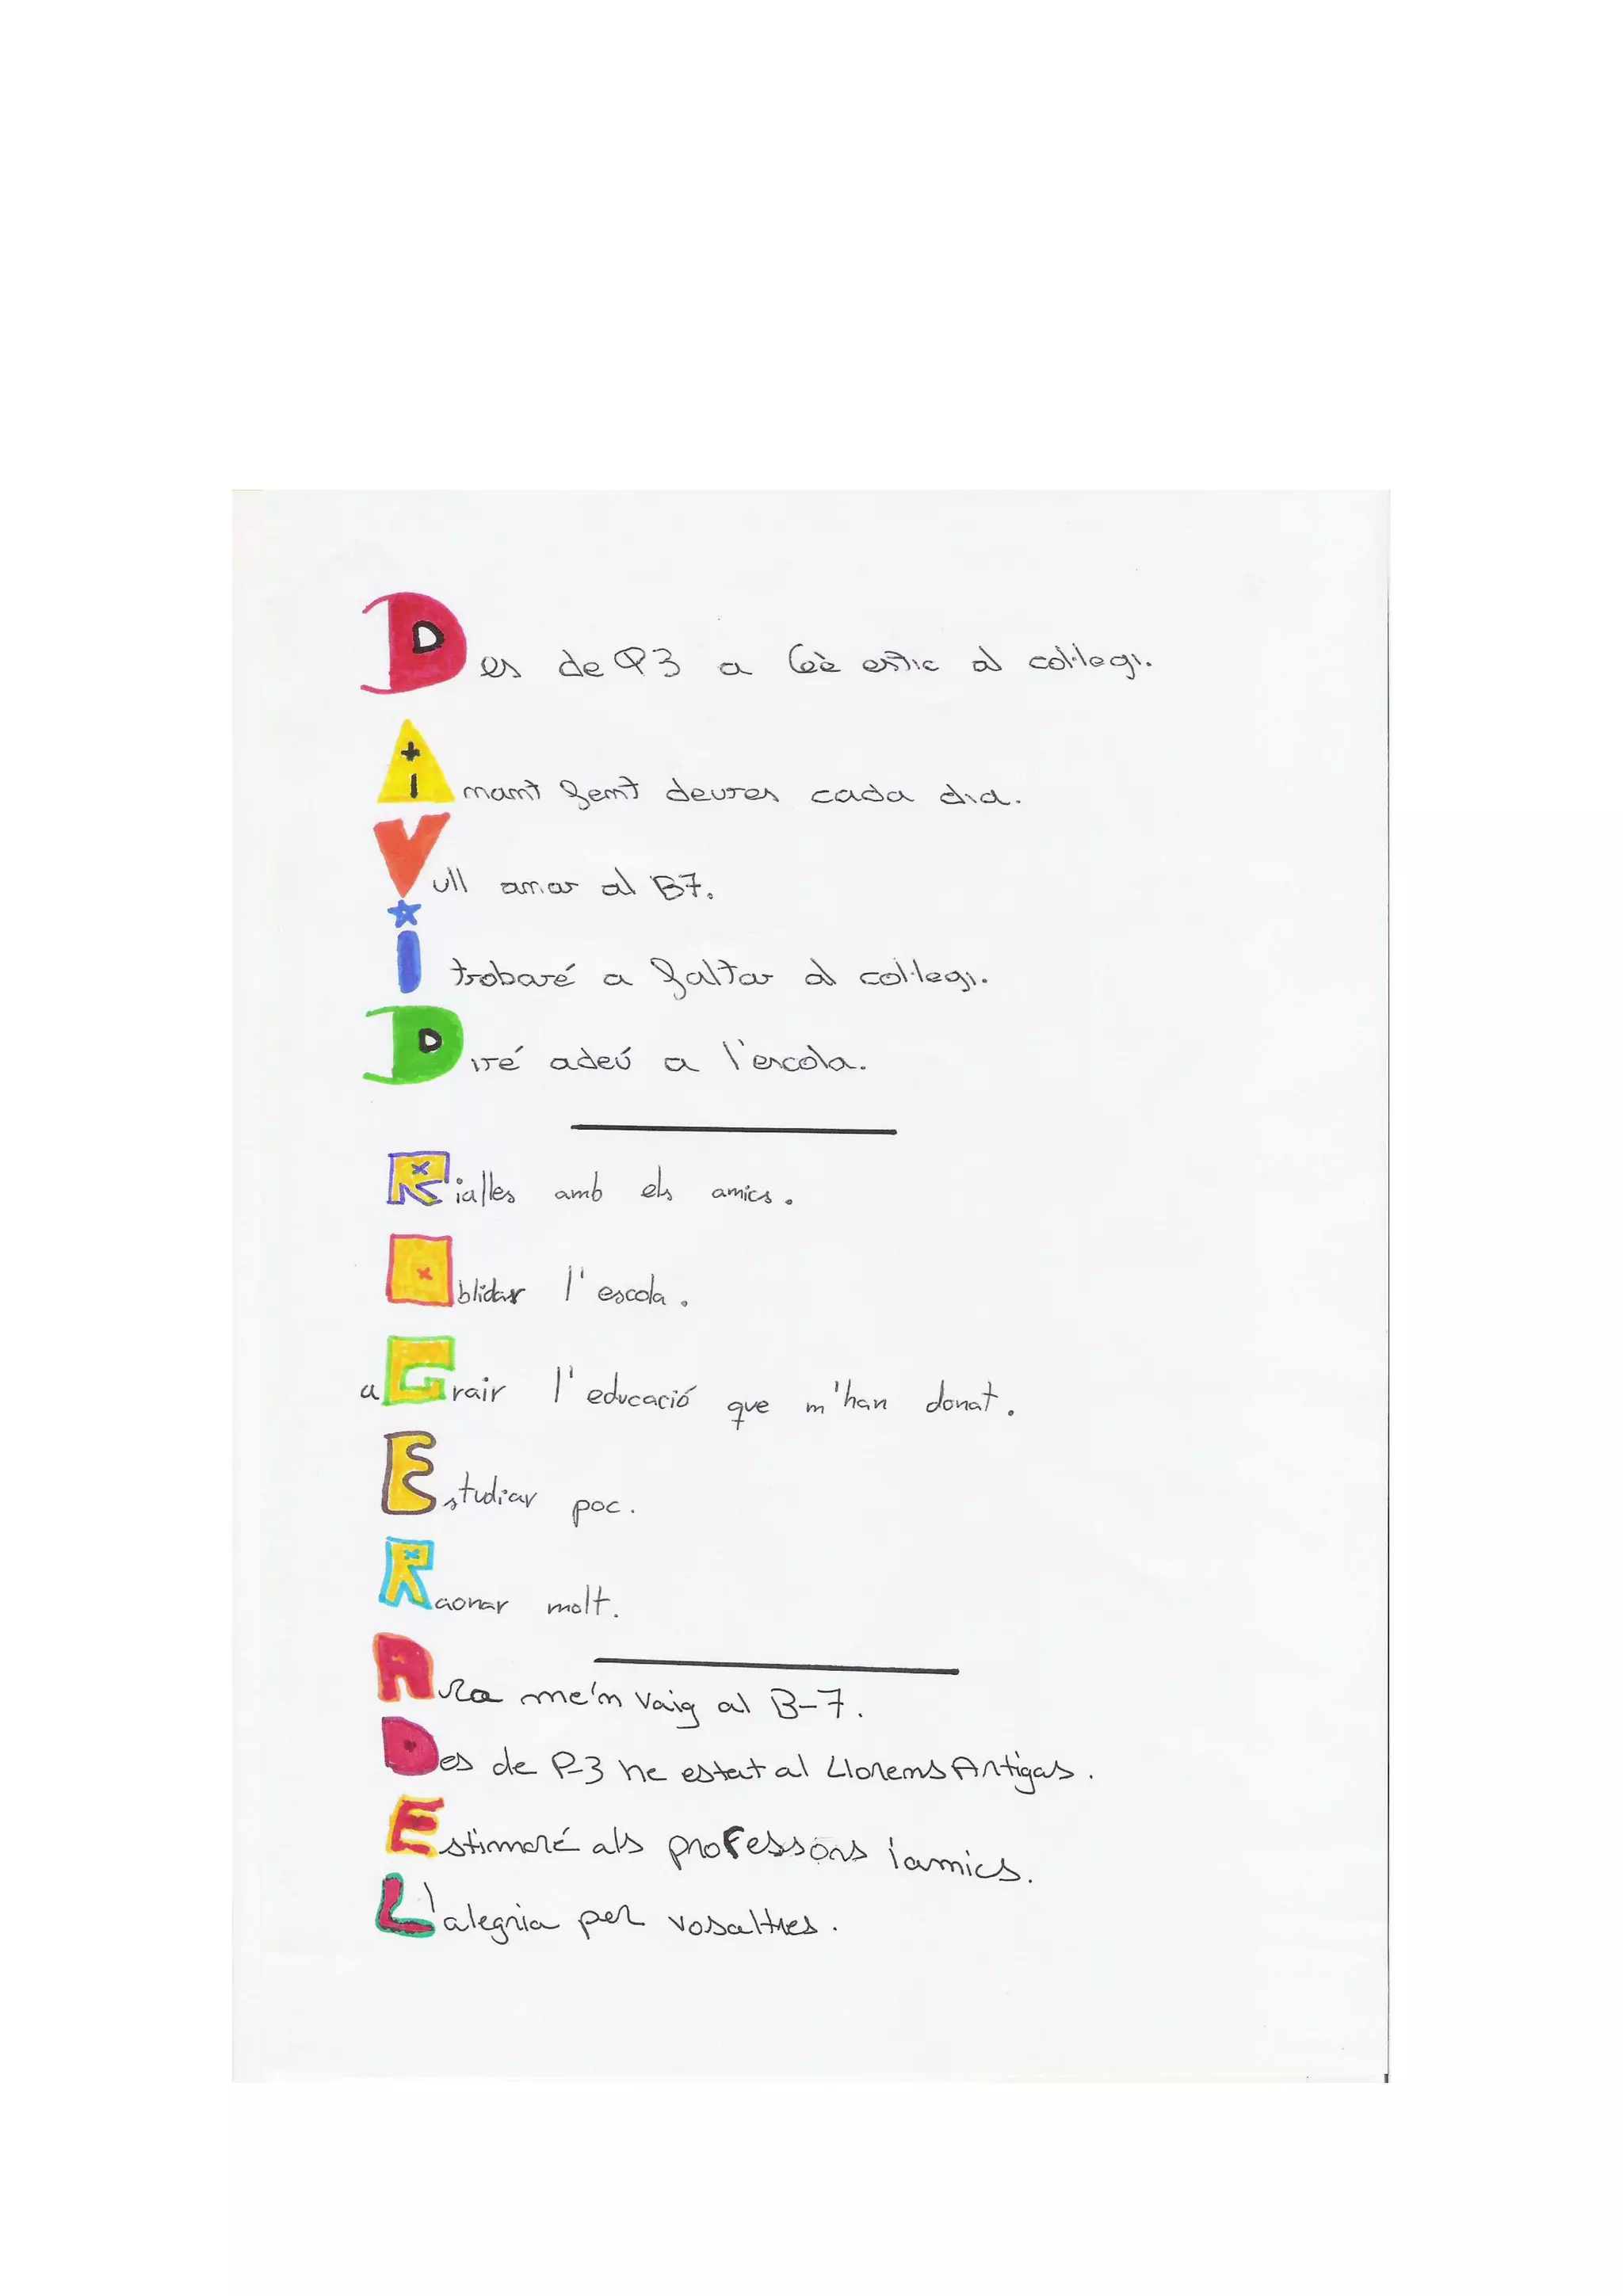 Des de P3 a 6è estic al col·legi.
Amant fent deures cada dia.
Vull anar al B7.
I trobaré a faltar al col·legi.
Diré adeú a l'escola.
Rialles amb els amics.
Oblidar l'escola.
aGrair l'educació que m'han donat.
Estudiar poc.
Raonar molt.
Ara me'n vaig al B-7.
Des de P-3 he estat al Llorens Artigas.
Estimaré als professors i amics.
L'alegria per vosaltres.